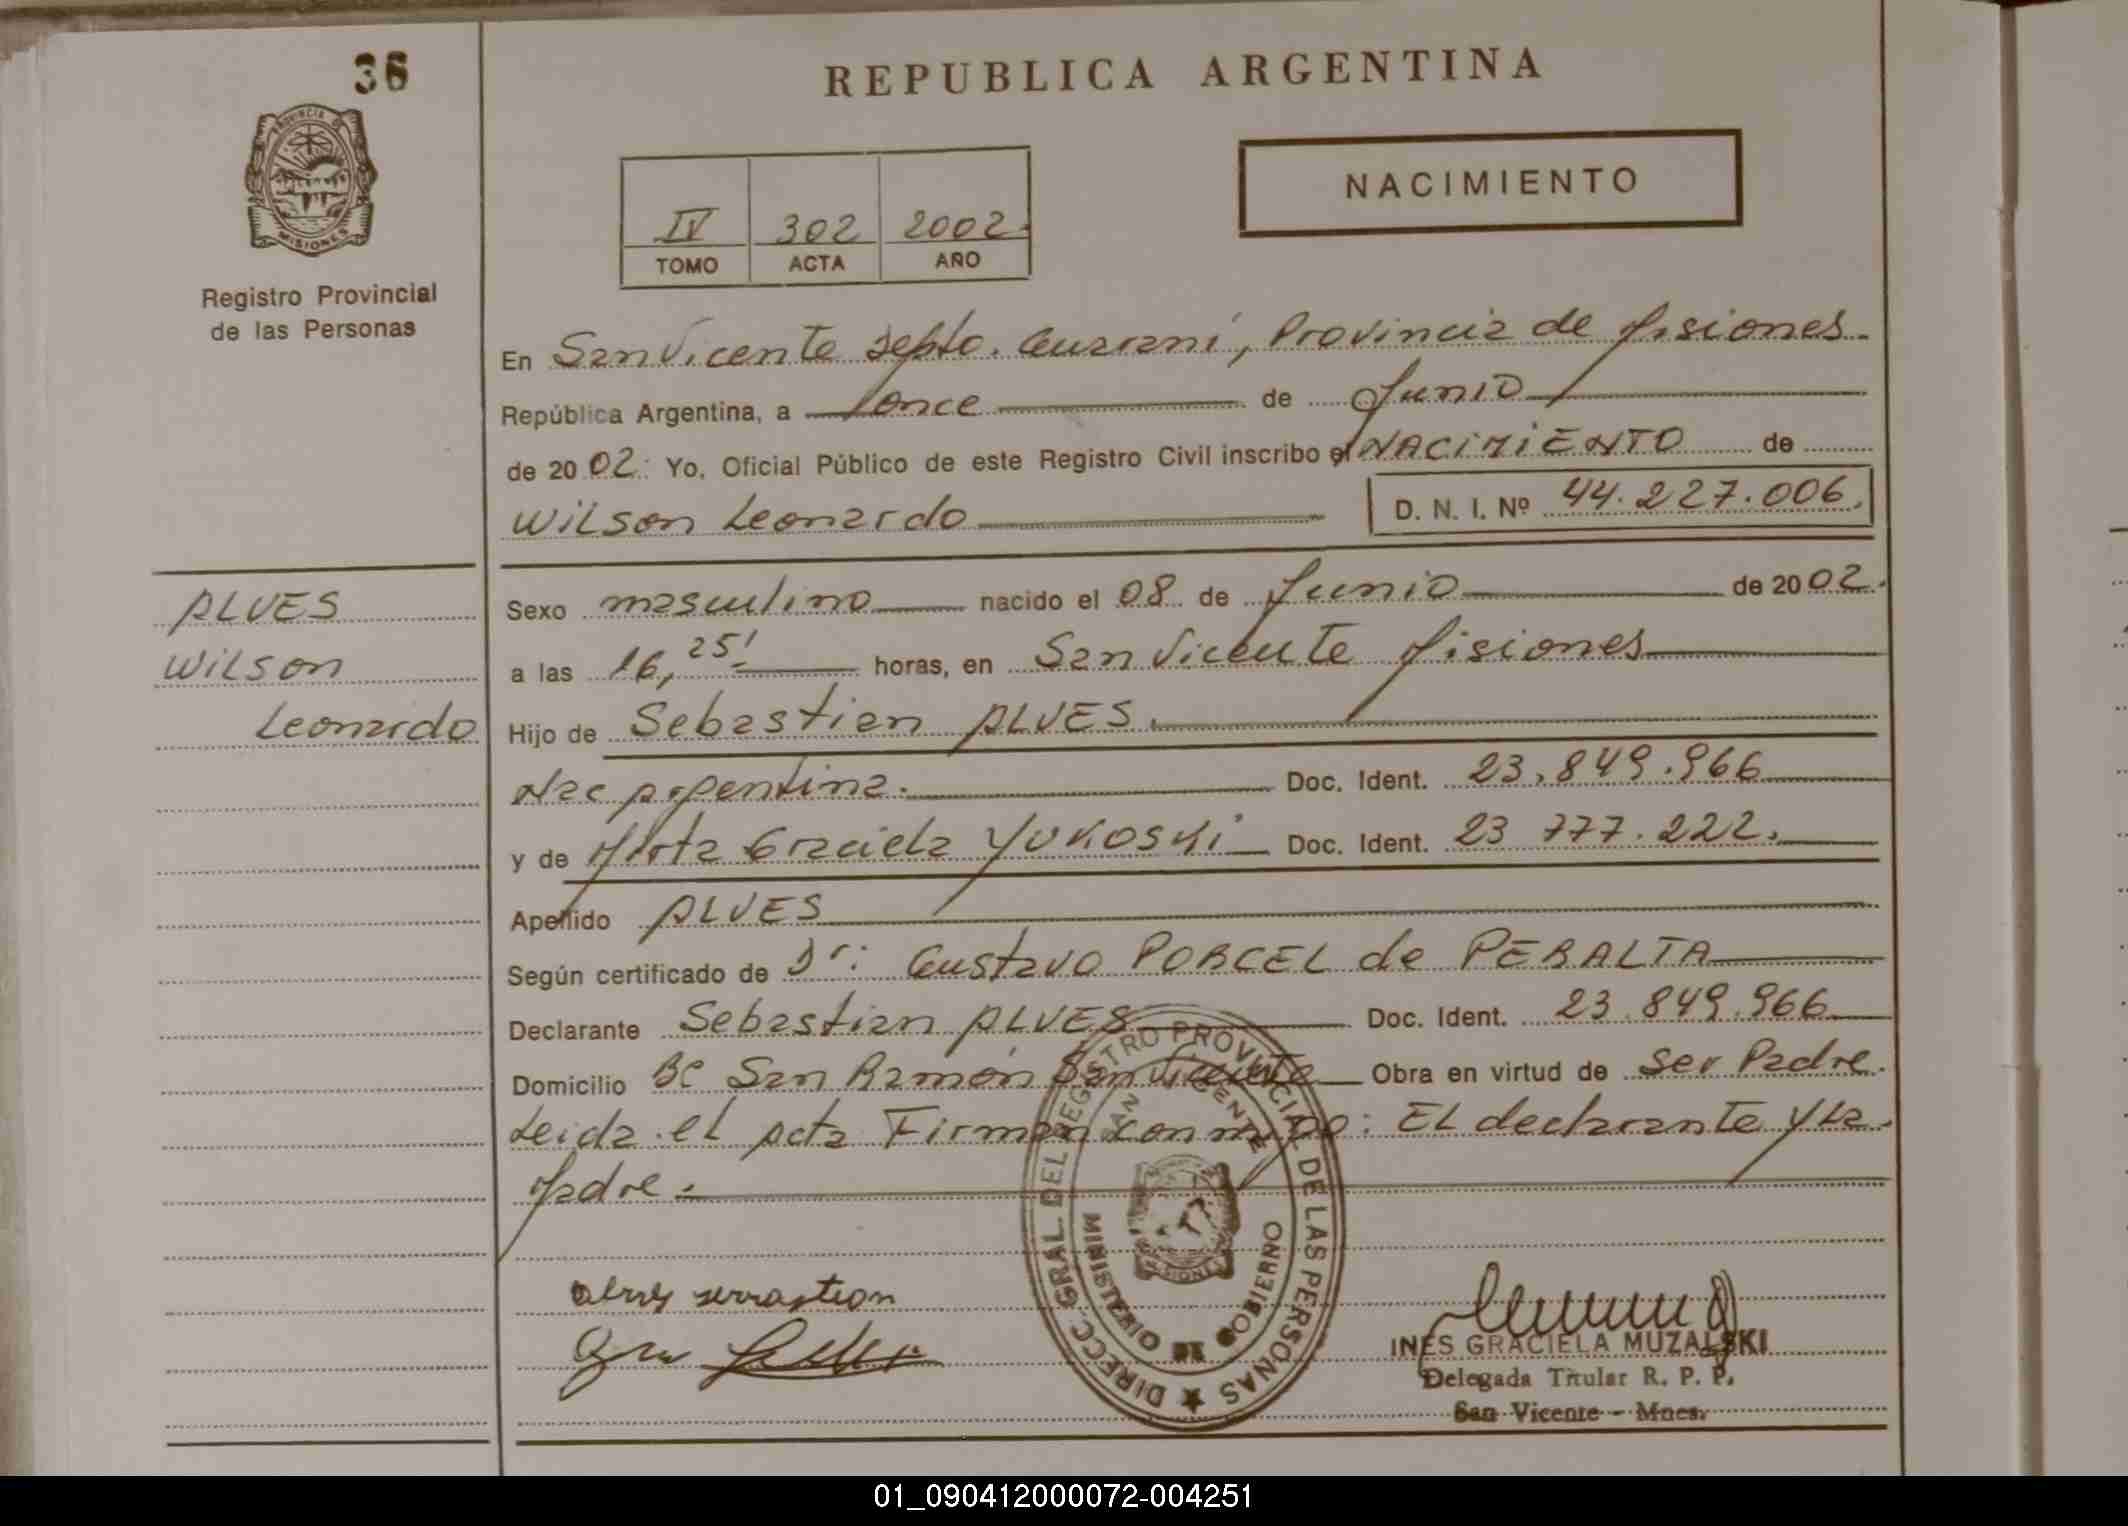 36
REPUBLICA ARGENTINA
PROVINCIA DE
MISIONES
Registro Provincial
de las Personas
NACIMIENTO
IV 302 2002.
TOMO ACTA AÑO
En San Vicente Depto. Guaraní, Provincia de Misiones.
República Argentina, a once de Junio
de 2002. Yo, Oficial Público de este Registro Civil inscribo el NACIMIENTO de
Wilson Leonardo
D. N. I. Nº 44.227.006.
ALVES
Wilson
Leonardo
Sexo masculino nacido el 08 de Junio de 2002.
a las 16,25' horas, en San Vicente Misiones
Hijo de Sebastian ALVES.
Nac Argentina. Doc. Ident. 23.849.966
y de Mirta Graciela YUKOSKI Doc. Ident. 23 777.222.
Apellido ALVES
Según certificado de Dr: Gustavo PORCEL de PERALTA
Declarante Sebastian ALVES Doc. Ident. 23.849.966
Domicilio Bº San Ramón San Vicente Obra en virtud de ser Padre.
Leida el Acta Firman con migo: EL declarante y La
Madre.
DIRECC. GRAL. DEL REGISTRO PROVINCIAL DE LAS PERSONAS
SAN VICENTE
MISIONES
MINISTERIO DE GOBIERNO
INES GRACIELA MUZALSKI
Delegada Titular R. P. P.
San Vicente - Mnes.
01_090412000072-004251